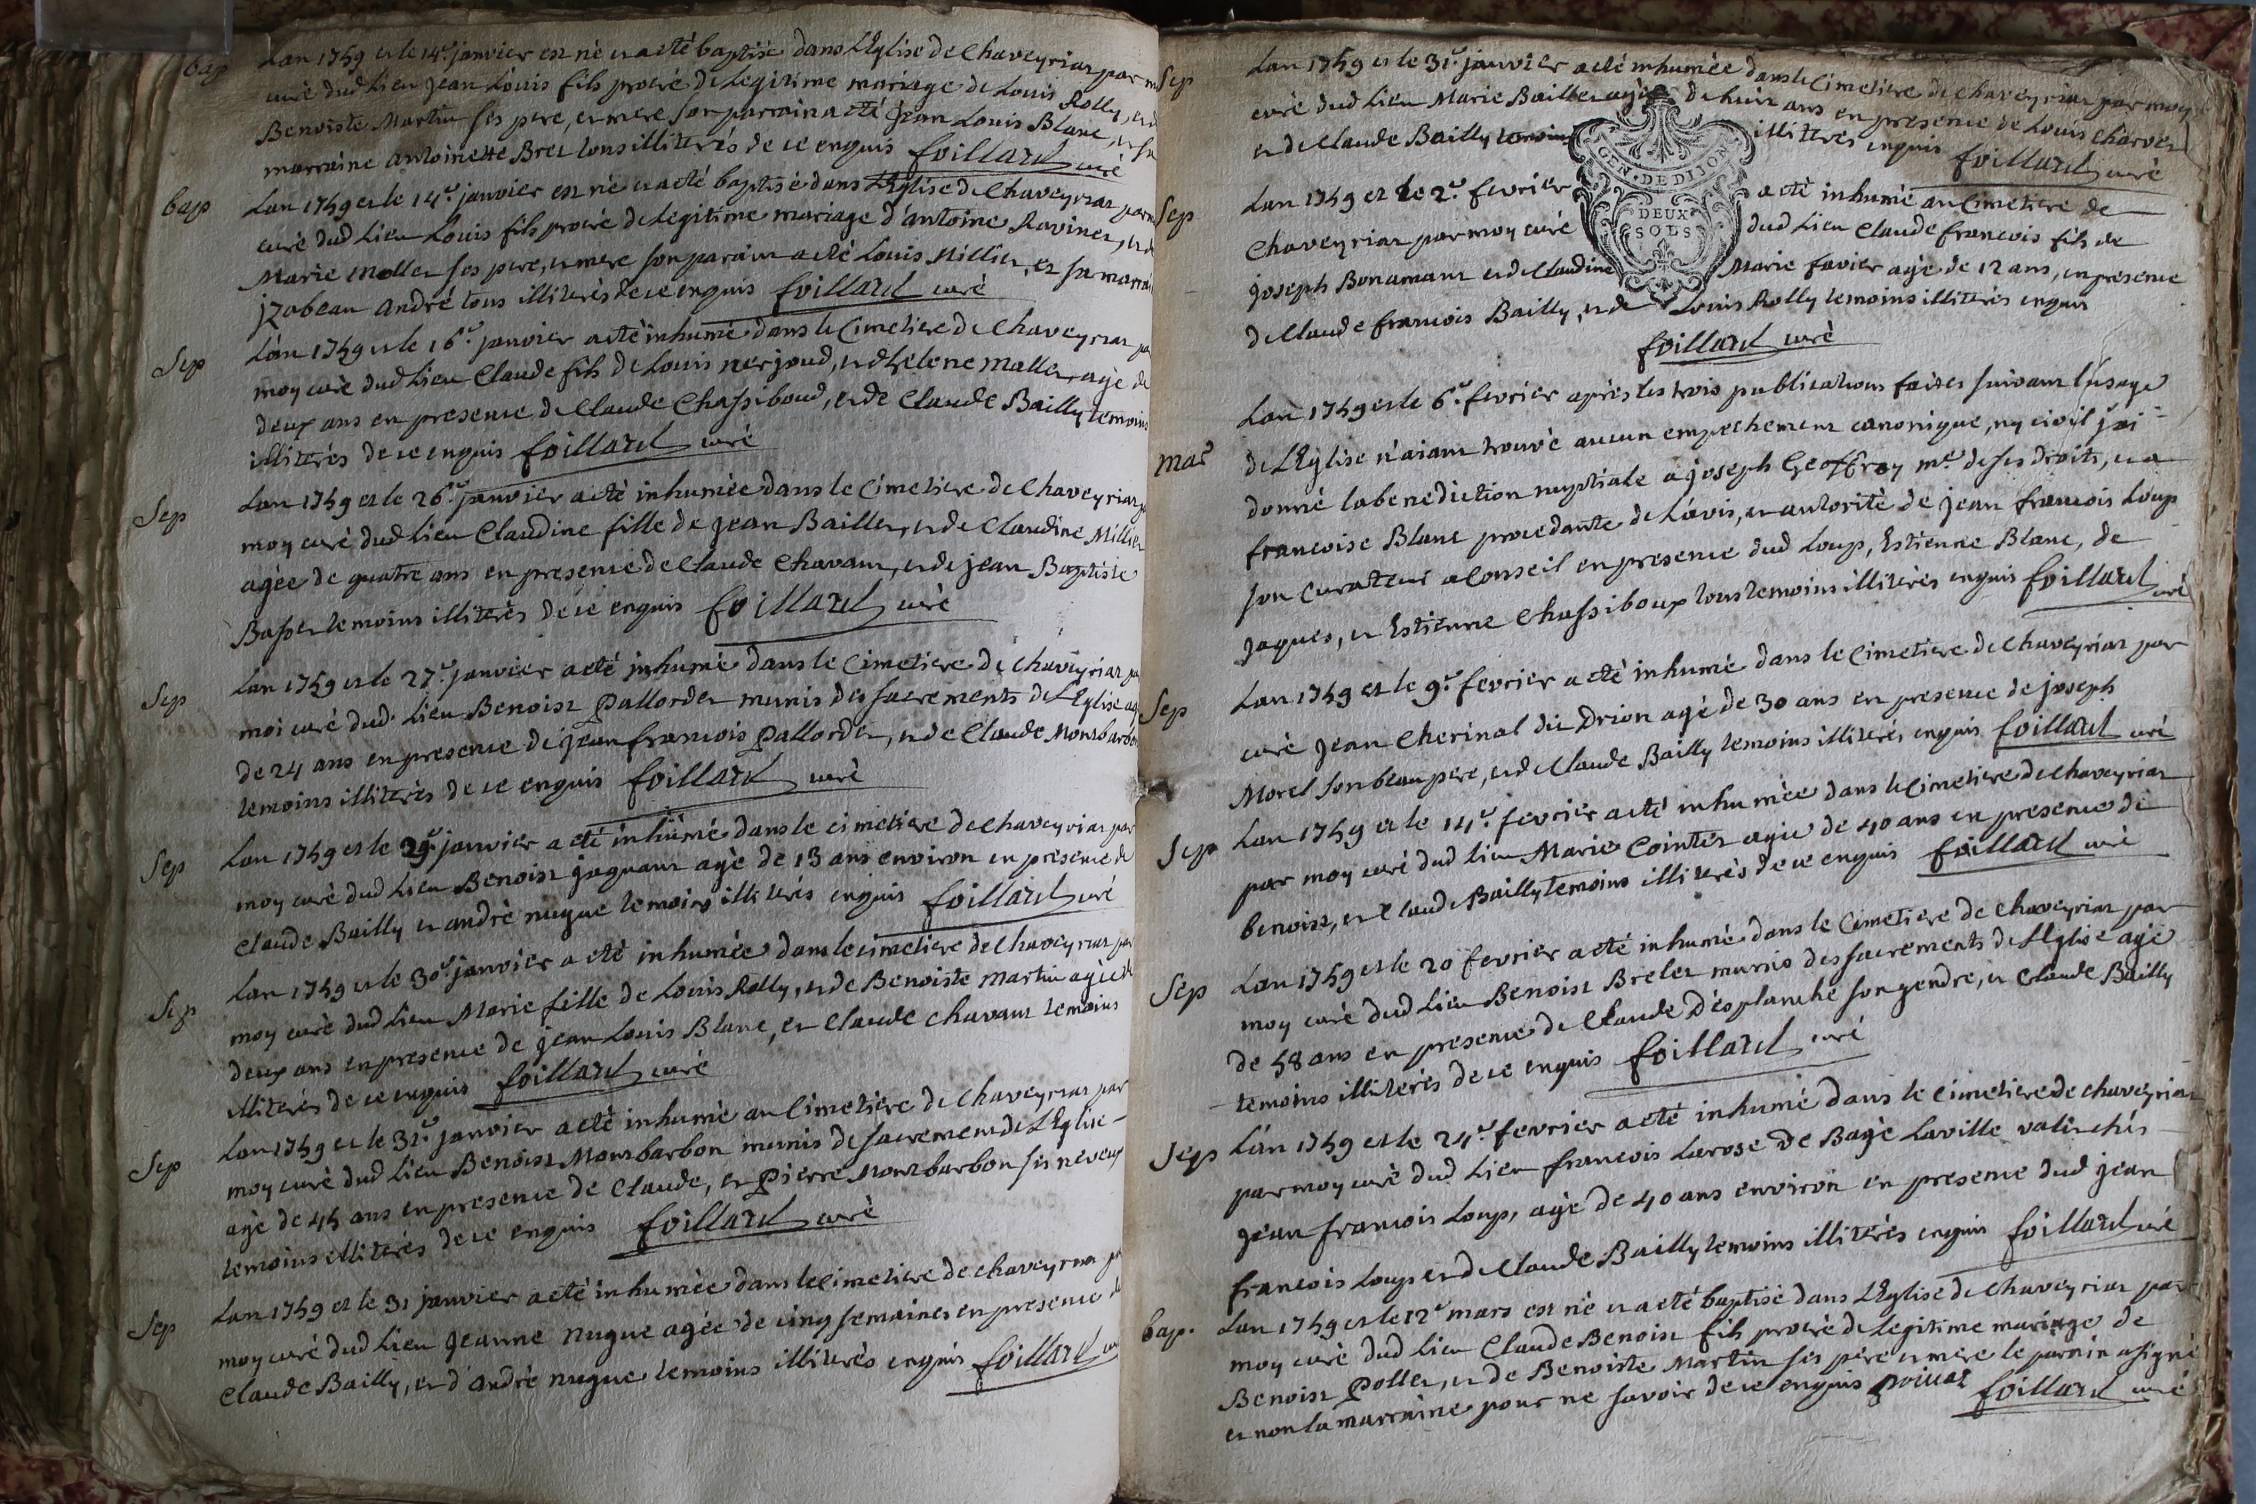 bap
Lan 1759 et le 14e janvier est né et a eté baptisé dans l'Eglise de Chaveyriat par m
curé dud Lieu Jean Louis fils procré de Legitime mariage de Louis Rolly, et d
Benoiste Martin ses pere, et mere son parrain a eté Jean Louis Blanc, et sa
marraine antoinette Bret tous illiterés de ce enquis foillard curé
bap
Lan 1759 et le 14e janvier est né et a eté baptisé dans l'Eglise de Chaveyriat par m
curé dud Lieu Louis fils procré de Legitime mariage d'antoine Raviner, et de
Marie moller ses pere, et mere son parain a eté Louis Millier, et sa marrai
jzabeau andré tous illiterés de ce enquis foillard curé
Sep
Lan 1759 et le 16e janvier a eté inhumé dans le Cimetiere de Chaveyriat pa
moy curé dud Lieu Claude fils de Louis nerjoud, et d helene moller, agé de
deux ans en presence de Claude Chassiboud, et de Claude Bailly temoins
illiterés de ce enquis foillard curé
Sep
Lan 1759 et le 26e janvier a eté inhumée dans le Cimetiere de Chaveyriat p
moy curé dud Lieu Claudine fille de jean Bailler, et de Claudine Millier
agée de quatre ans en presence de Claude Chavant, et de jean Baptiste
Basset temoins illiterés de ce enquis foillard curé
Sep
Lan 1759 et le 27e janvier a eté inhumé dans le Cimetiere de Chaveyriat pa
moi curé dud Lieu Benoist Pallordet munis des sacrements de l'Eglise ag
de 24 ans en presence de jean francois Pallordet, et de Claude Montbarbon
temoins illiterés de ce enquis foillard curé
Sep
Lan 1759 et le 29e janvier a eté inhumé dans le cimetiere de Chaveyriat par
moy curé dud Lieu Benoist jaquant agé de 13 ans environ en presence de
Claude Bailly et andré nugue temoins illiterés enquis foillard curé
Sep
Lan 1759 et le 30e janvier a eté inhumée dans le cimetiere de Chaveyriat par
moy curé dud Lieu Marie fille de Louis Rolly, et de Benoiste Martin agée de
deux ans en presence de jean Louis Blanc, et Claude Chavant temoins
illiterés de ce enquis foillard curé
Sep
Lan 1759 et le 31e janvier a eté inhumé au Cimetiere de Chaveyriat par
moy curé dud Lieu Benoist Montbarbon munis de sacrement de l'Eglise
agé de 45 ans en presence de Claude, et Pierre Montbarbon ses neveux
temoins illiterés de ce enquis foillard curé
Sep
Lan 1759 et le 31 janvier a eté inhumée dans le Cimetiere de Chaveyriat pa
moy curé dud Lieu Jeanne nugue agée de cinq semaines en presence de
Claude Bailly, et d'andré nugue temoins illiterés enquis foillard cu
Sep
Lan 1759 et le 31e janvier a eté inhumée dans le Cimetiere de Chaveyriat par moy
curé dud Lieu Marie Bailler agée de huit ans en presence de Louis Charvet
et de Claude Bailly temoins illiterés enquis foillard curé
GEN. DE DIJON
DEUX
SOLS
Sep
Lan 1759 et le 2e fevrier a eté inhumé au Cimetiere de
Chaveyriat par moy curé dud Lieu Claude francois fils de
joseph Bonamant et de Claudine Marie favier agé de 12 ans, en presence
de Claude francois Bailly, et de Louis Rolly temoins illiterés enquis
foillard curé
mar
Lan 1759 et le 6e fevrier apres les trois publications faites suivant l'usage
de l'Eglise n'aiant trouvé aucun empechement canonique, ny civil j'ai
donné la benediction nuptiale a joseph Geoffray me de ses droits, et a
francoise Blanc procedante de L'avis, et autorité de jean francois Loup
son Curateur a Conseil en presence dud Loup, Estienne Blanc, de
Jaques, et Estienne Chassiboux tous temoins illiterés enquis foillard curé
Sep
Lan 1759 et le 9e fevrier a eté inhumé dans le Cimetiere de Chaveyriat par
curé Jean Cherinal dit Drion agé de 30 ans en presence de joseph
Morel son beau pere, et de Claude Bailly temoins illiterés enquis foillard curé
Sep
Lan 1759 et le 14e fevrier a eté inhumée dans le Cimetiere de Chaveyriat
par moy curé dud lieu Marie Cointer agée de 40 ans en presence de
benoist, et Claude Bailly temoins illiterés de ce enquis foillard curé
Sep
Lan 1759 et le 20 fevrier a eté inhumé dans le Cimetiere de Chaveyriat par
moy curé dud Lieu Benoist Brelet munis des sacrements de l'Eglise agé
de 58 ans en presence de Claude D'esplanche son gendre, et Claude Bailly
temoins illiterés de ce enquis foillard curé
Sep
L'an 1759 et le 24e fevrier a eté inhumé dans le Cimetiere de Chaveyriat
par moy curé dud Lieu francois Larose de Bagé Laville valet chés
jean francois Loup, agé de 40 ans environ en presence dud jean
francois Loup et de Claude Bailly temoins illiterés enquis foillard curé
bap.
Lan 1759 et le 12e mars est né et a eté baptisé dans l'Eglise de Chaveyriat par
moy curé dud Lieu Claude Benoist fils procré de Legitime mariage de
Benoist Poller, et de Benoiste Martin ses pere et mere le parrin a signé
et non la marraine pour ne savoir de ce enquis foillard curé